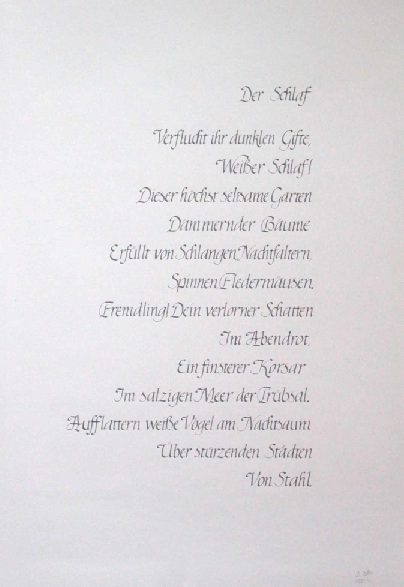 Der Schlaf
Verflucht ihr dunklen Gifte,
Weißer Schlaf!
Dieser höchst seltsame Garten
Dämmernder Bäume
Erfüllt von Schlangen, Nachtfaltern,
Spinnen, Fledermäusen.
Fremdling! Dein verlorner Schatten
Im Abendrot,
Ein finsterer Korsar
Im salzigen Meer der Trübsal.
Aufflattern weiße Vögel am Nachtsaum
Über stürzenden Städten
Von Stahl.